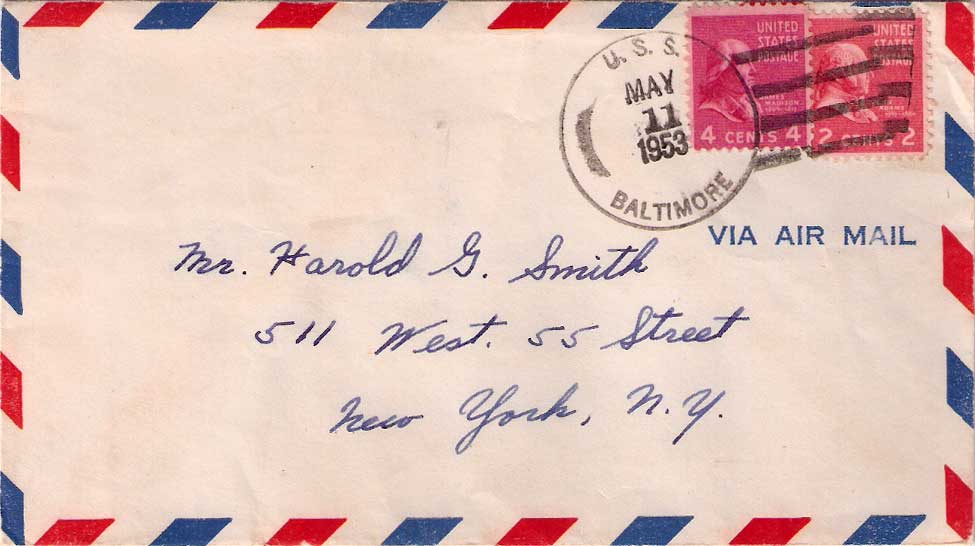 U.S.S.
MAY
11
1953
BALTIMORE
UNITED
STATES
POSTAGE
JAMES
MADISON
4 CENTS 4
UNITED
STATES
POSTAGE
ADAMS
2 CENTS 2
VIA AIR MAIL
Mr. Harold G. Smith
511 West. 55 Street
New York, N.Y.